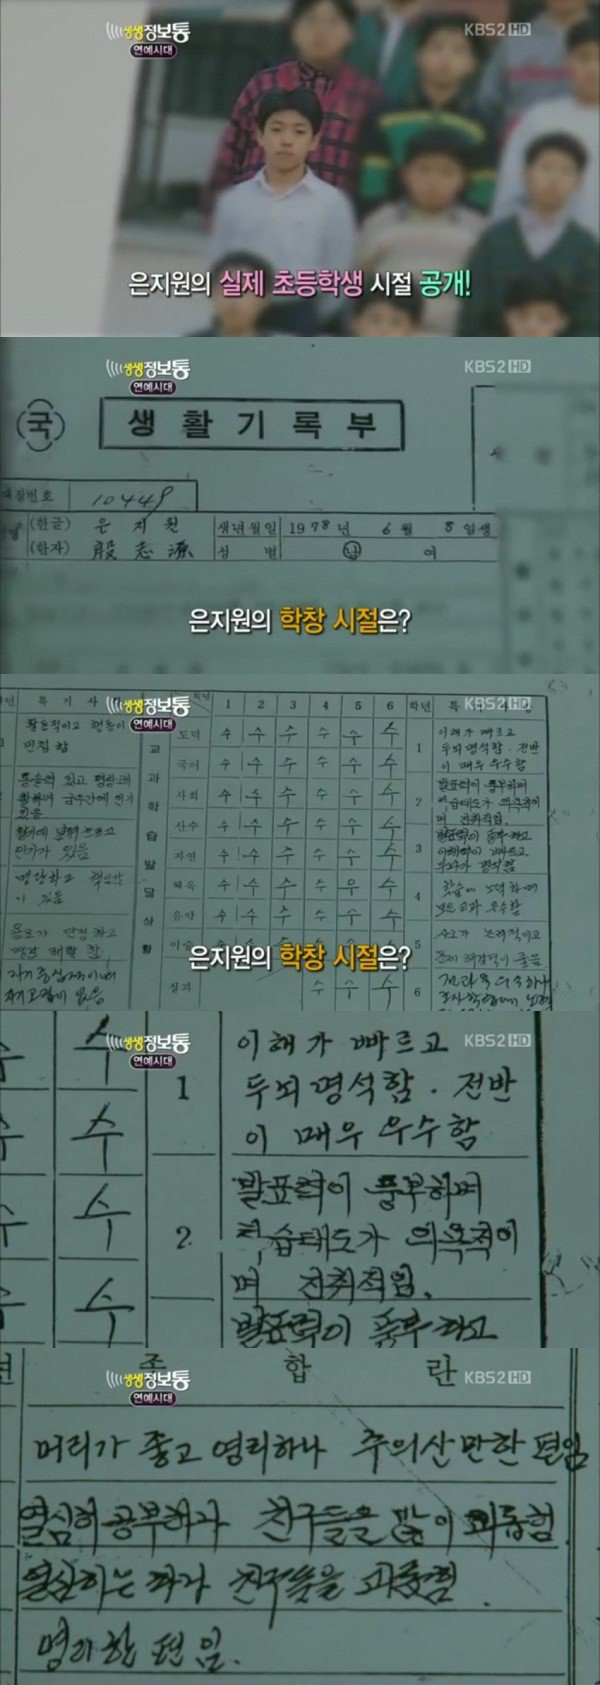 생생정보통
연예시대
KBS2 HD
은지원의 실제 초등학생 시절 공개!
생생정보통
연예시대
KBS2 HD
국
생활기록부
대장번호 10449
(한글) 은지원 생년월일 1978년 6월 8일생
(한자) 殷志源 성별 남 여
은지원의 학창 시절은?
생생정보통
연예시대
KBS2 HD
특기사 1 2 3 4 5 6 학년
활동적이고 행동이
민첩함
교과학습발달상황
도덕 수 수 수 수 수 수
국어 수 수 수 수 수 수
사회 수 수 수 수 수 수
산수 수 수 수 수 수 수
자연 수 수 수 수 수 수
체육 수 수 수 수 우 수
음악 수 수 수 수 수 수
미술
실과 수 수 수
통솔력 있고 명랑
인기가 있음
명랑하고 책임감
이 있음
용모가 단정하고
1 이해가 빠르고
두뇌 명석함. 전반
이 매우 우수함
2 발표력이 풍부하며
학습태도가 의욕적이
며 진취적임.
3 발표력이 풍부하고
이해력이 빠르고
두뇌가 명석함
4 학습에 노력하며
모든 교과 우수함
5 사고가 논리적이고
문제 해결력이 좋음
6
은지원의 학창 시절은?
생생정보통
연예시대
KBS2 HD
수
수
수
수
1 이해가 빠르고
두뇌 명석함. 전반
이 매우 우수함
2 발표력이 풍부하며
학습태도가 의욕적이
며 진취적임.
발표력이 풍부하고
생생정보통
연예시대
KBS2 HD
종합란
머리가 좋고 영리하나 주의산만한 편임
열심히 공부하나 친구들을 많이 괴롭힘
열심히는 하나 친구들을 괴롭힘.
명리한 편임.